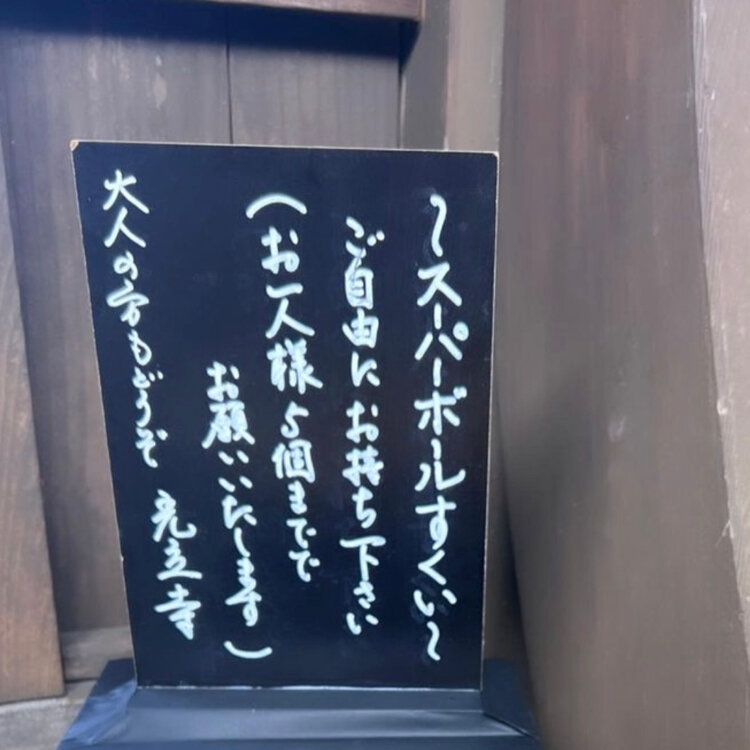 ～スーパーボールすくい～
ご自由にお持ち下さい
（お一人様5個までで
お願いいたします）
大人の方もどうぞ
光立寺